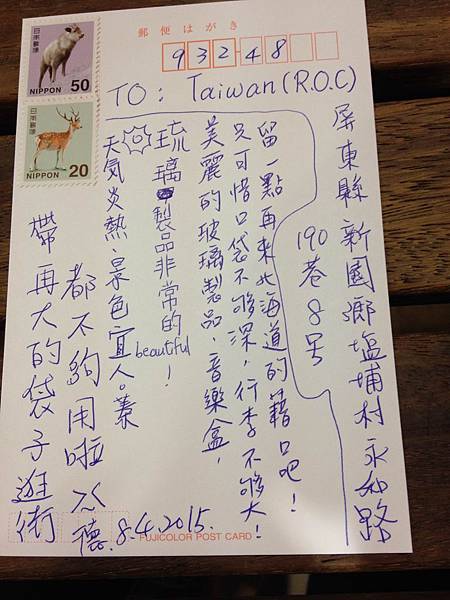 郵便はがき
932-48
日本郵便
NIPPON 50
日本郵便
NIPPON 20
TO: Taiwan (R.O.C)
屏東縣新園鄉塩埔村永和路
190巷8号
留一點再來北海道的藉口吧！
只可惜口袋不够深，行李不够大！
美麗的玻璃製品、音樂盒，
琉璃製品非常的beautiful！
天氣炎熱、景色宜人。
都不夠用啦
帶再大的袋子逛街
8.4.2015.
FUJICOLOR POST CARD